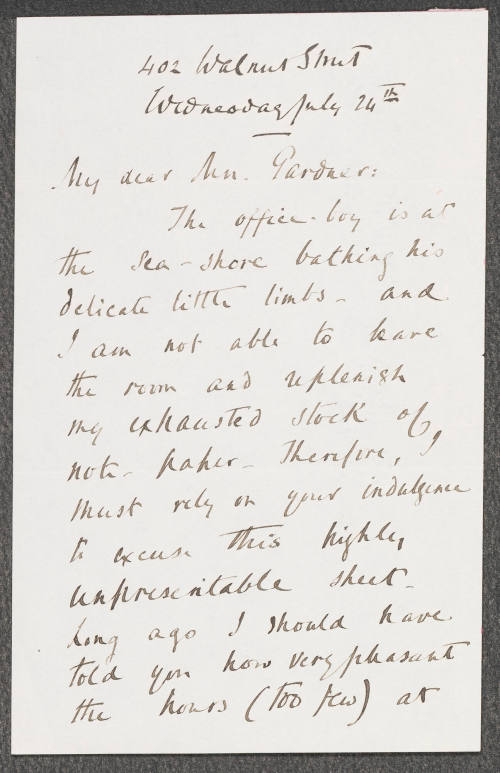 402 Walnut Street
Wednesday July 24th
My dear Mrs. Gardner:
The office-boy is at
the sea-shore bathing his
delicate little limbs - and
I am not able to leave
the room and replenish
my exhausted stock of
note-paper - Therefore, I
must rely on your indulgence
to excuse this highly
unpresentable sheet -
Long ago I should have
told you how very pleasant
the hours (too few) at